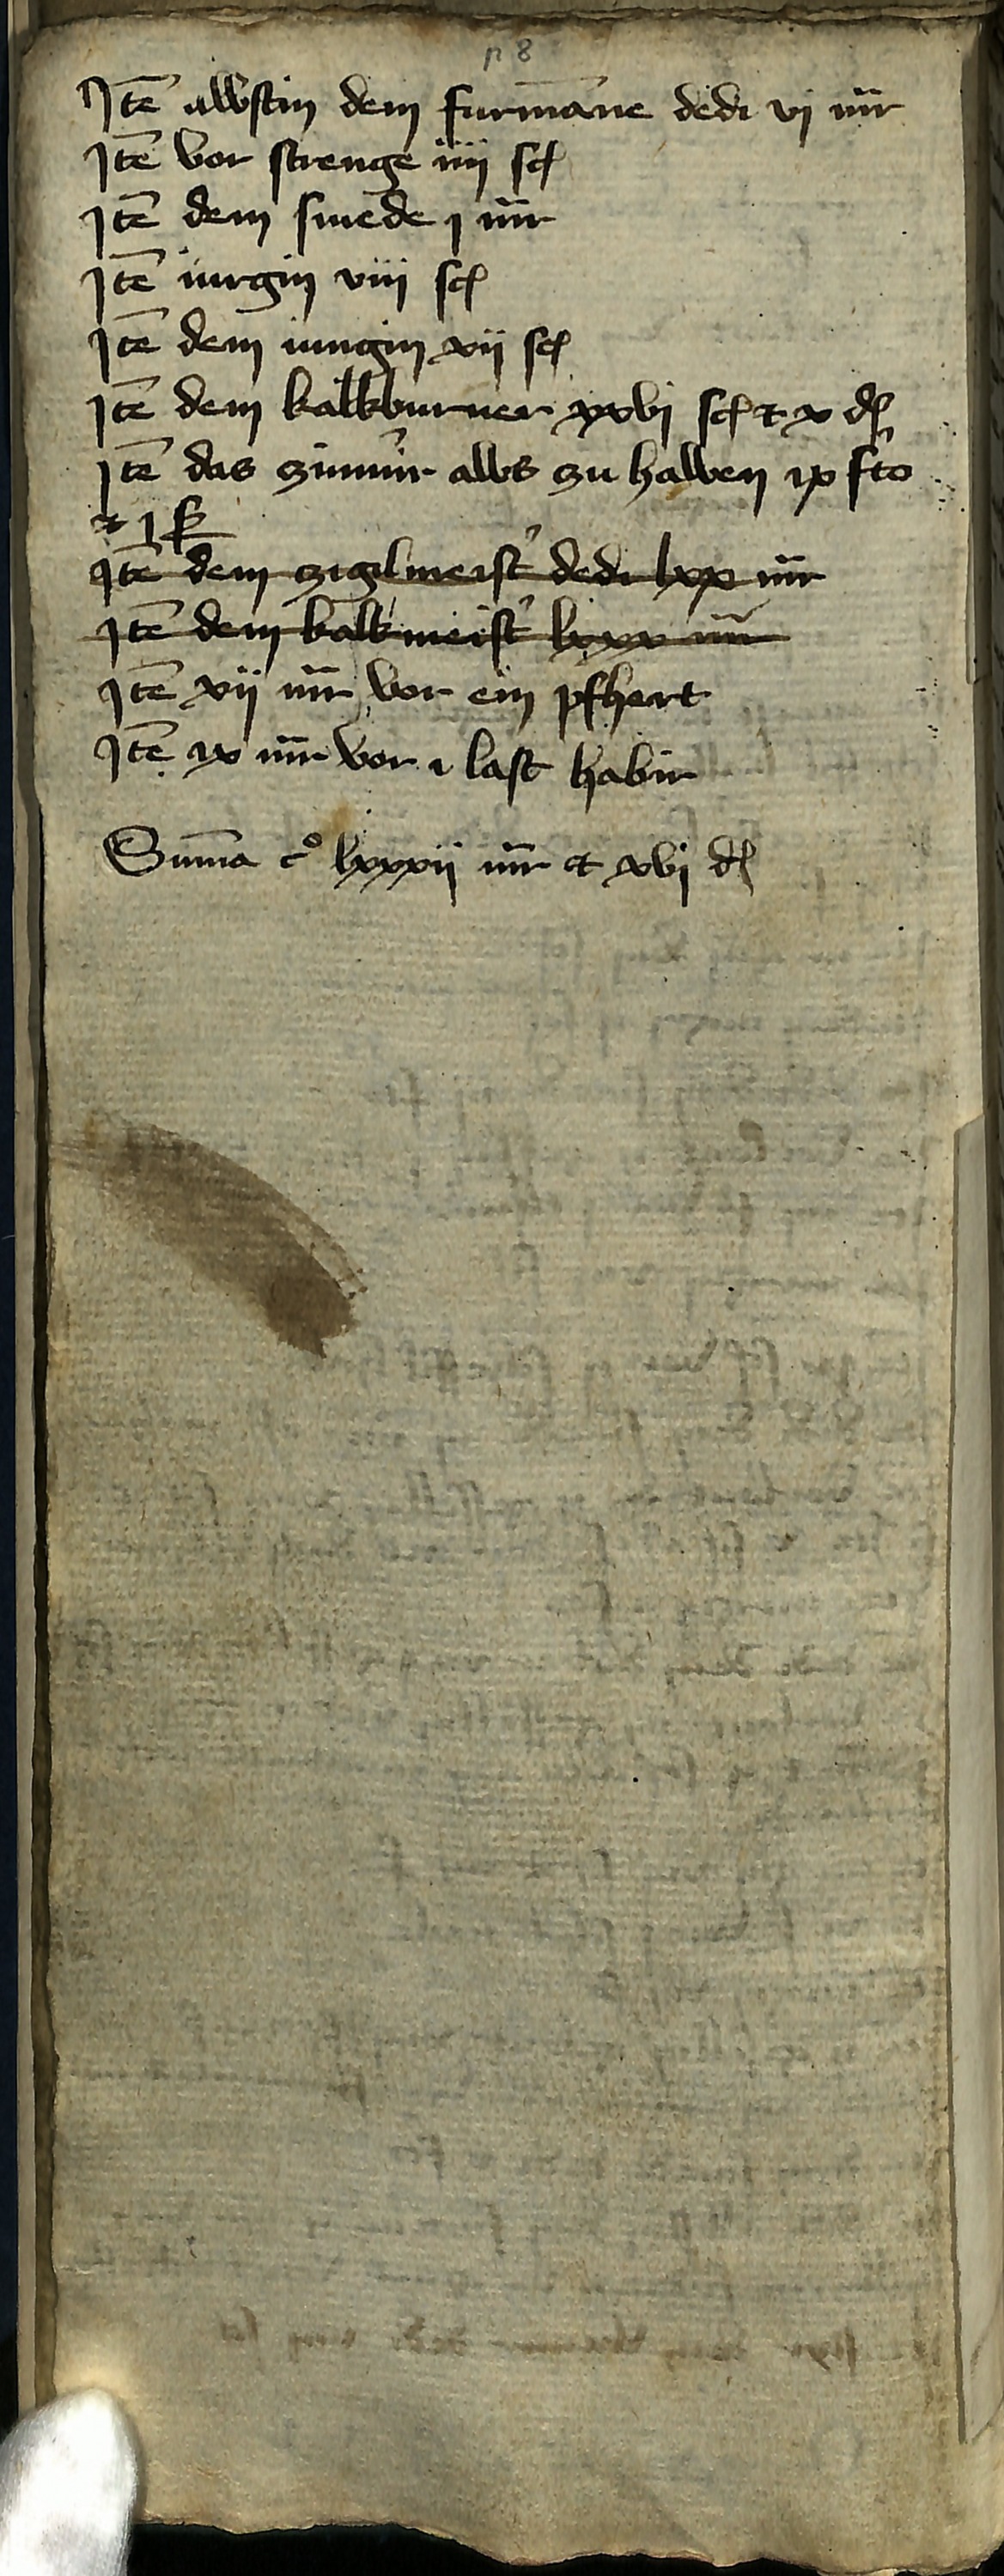 p 8
Jtē albstin dem furmāne dedi vi mr̄
Jtē vor strenge iiij sch
Jtē dem smede j mr̄
Jtē iurgin viij sch
Jtē dem iungin xij sch
Jtē dem kalkburner xxvj sch et x d
Jtē das zimmir alls zu halben ix sto
et j
Jtē dem zigilmeist' dedi lxx mr̄
Jtē dem kalkmeist' lxxx mr̄
Jtē xij mr̄ vor ein pfhert
Jtē ix mr̄ vor i last habir
Sum̄a cͦ lxxxij mr̄ et xvj d